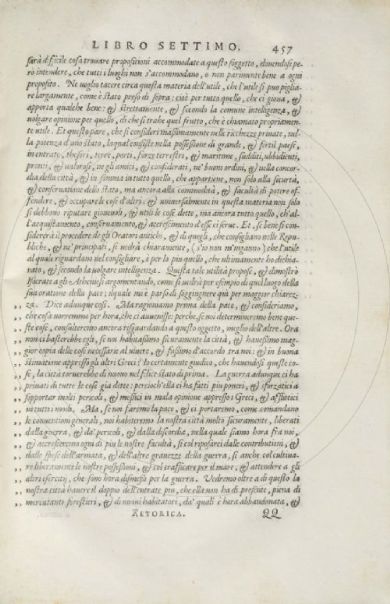 LIBRO SETTIMO. 457
sarà difficile cosa trouare propositioni accommodate a questo soggetto, douendosi pe-
rò intendere, che tutti i luoghi non s'accommodano, o non parimente bene a ogni
proposito. Ne voglio tacere circa questa materia dell'utile, che l'utile si puo piglia-
re largamente, come è stato preso di sopra: cioè per tutto quello, che ci gioua, &
apporta qualche bene: & strettamente, & secondo la comune intelligenza, &
volgare opinione per quello, di che si trahe quel frutto, che è chiamato propriamen-
te utile. Et questo pare, che si consideri massimamente nelle ricchezze priuate, nel-
la potenza d'uno stato, la qual consiste nella possessione di grande, & fertil paese,
membrati, thesori, porti, forze terrestri, & maritime, sudditi, ubbidienti,
pronti, & valorosi, ne gli amici, & confederati, ne' buoni ordini, & nella concor-
dia della città, & in somma in tutto quello, che appartiene, non solo alla sicurtà,
& conseruatione dello stato, ma ancora alla commodità, & facultà di potere of-
fendere, & occupare le cose d'altri: & uniuersalmente in questa materia non solo
si debbono riputare gioueuoli, & utili le cose dette, ma ancora tutto quello, ch'al-
l'acquistamento, conseruamento, & accrescimento d'esse ci serue. Et, se bene si con-
sidererà il procedere de gli Oratori antichi, & di quegli, che consigliano nelle Repu-
bliche, & ne' principati, si uedrà chiaramente, (s'io non m'inganno) che l'utile
al quale riguardano nel consigliare, è per la piu quello, che ultimamente ho dichia-
rato, & secondo la volgare intelligenza. Questa tale utilità propose, & dimostrò
Isocrate a gli Atheniesi argomentando, come si uedrà per esempio di quel luogo della
sua oratione della pace; il quale mi è parso di soggiugnere quì per maggior chiarez-
za. Dice adunque così. Ma ragioniamo prima della pace, & consideriamo,
che cosa uorremmo per hora, che ci auuenisse: perche, se noi determineremo bene que-
ste cose, consulteremo ancora riguardando a questo oggetto, meglio dell'altre. Ora
non ci basterebbe egli, se noi habitassimo sicuramente la città, & hauessimo mag-
gior copia delle cose necessarie al uiuere, & fossimo d'accordo tra noi: & in buona
stimatione appresso gli altri Greci? Io certamente giudico, che hauendosi queste co-
se, la città tornerebbe di nuouo nel felice stato di prima. La guerra adunque ci ha
priuati di tutte le cose già dette: percioch'ella ci ha fatti piu poueri, & sforzatici a
sopportar molti pericoli, & messici in mala opinione appresso i Greci, & afflitti
in tutti i modi. Ma, se noi faremo la pace, & ci porteremo, come comandano
le conuention generali, noi habiteremo la nostra città molto sicuramente, liberati
dalla guerra, & da' pericoli, & dalla discordia, nella quale siamo hora fra noi,
& accresceremo ogni dì piu le nostre facultà, sì col riposarci dalle contributioni, &
dalle spese dell'armata, & dell'altre grauezze della guerra, sì anche col coltiua-
re liberamente le nostre possessioni, & col trafficare per il mare, & attendere a gli
altri esercitij, che sono hora dismessi per la guerra. Vedremo oltre a di questo la
nostra città hauere il doppio dell'entrate piu, che ella non ha di presente, piena di
mercatanti forestieri, & di nuoui habitatori, da' quali è hora abbandonata, &
RETORICA. QQ